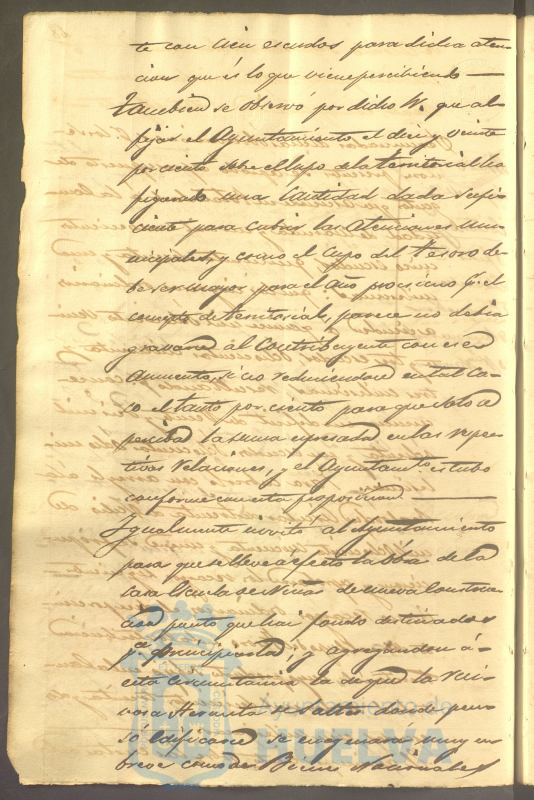 te con cien escudos para dicha aten-
cion que es lo que viene percibiendo
Tambien se observó por dicho Sr. que al
fijar el Ayuntamiento el diez y veinte
por ciento sobre el Cupo de la territorial ha
figurado una Cantidad dada sufi-
ciente para cubrir las atenciones mu-
nicipales, y como el Cupo del Tesoro de-
be ser mayor para el año procsimo pr. el
concepto de territorial, parece no debia
gravarse al Contribuyente con ese
aumento, sino reduciendose en tal ca-
so el tanto por ciento para que solo se
perciba la suma espresada en las respec-
tivas relaciones, y el Ayuntamto. estubo
conforme con esta proposicion.
Igualmente invitó al Ayuntamiento
para que se lleve a efecto la obra de la
Casa Escuela de Niñas de nueva construc-
cion puesto que hai fondo destinados
pa. principiarla y agregandose á
esta circunstancia la de que la
Hermita de Saltes donde pen-
só edificarse se enagenará muy en
breve como de Bienes Nacionales
Ayuntamiento de
HUELVA